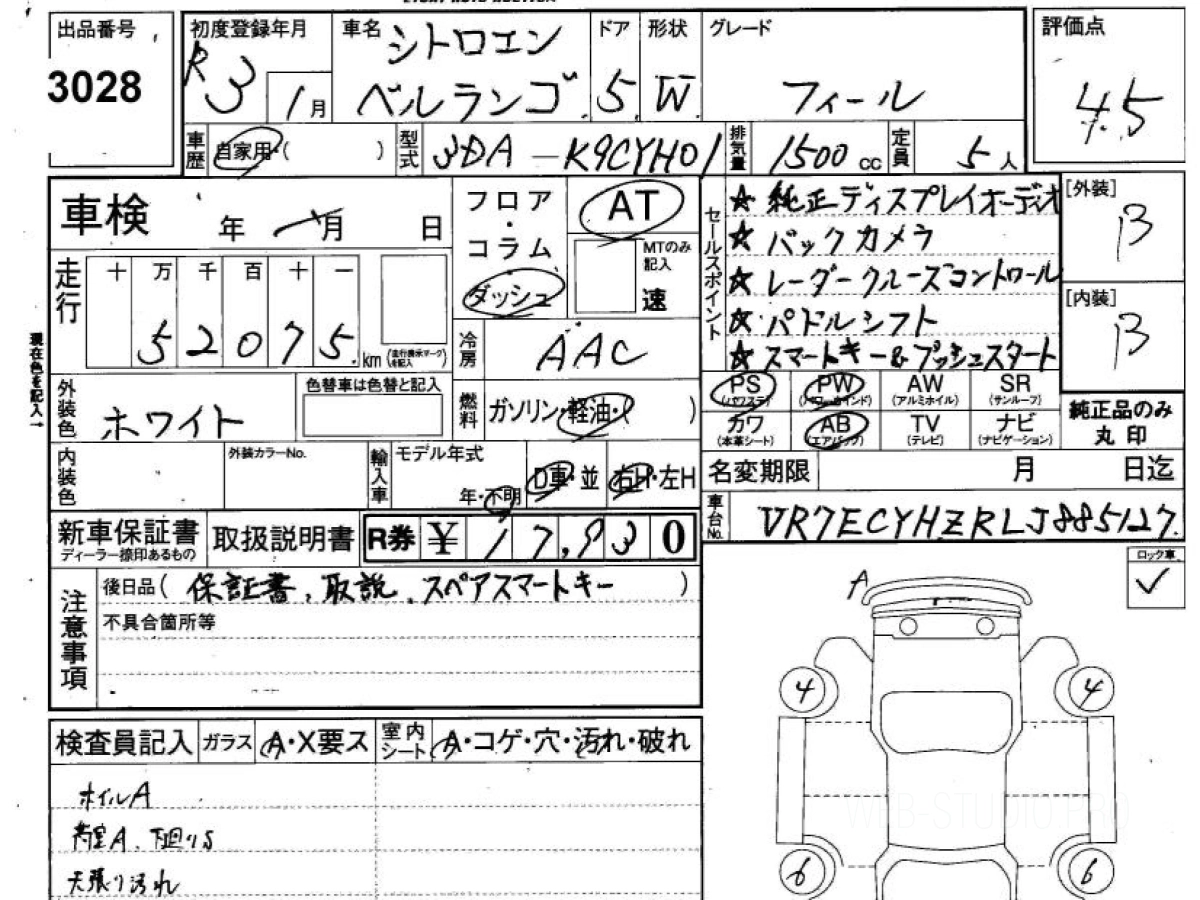 出品番号
3028
初度登録年月
R3
1月
車名
シトロエン
ベルランゴ
ドア
5
形状
W
グレード
フィール
評価点
4.5
車歴
自家用・( )
型式
3DA-K9CYH01
排気量
1500 cc
定員
5人
車検
年 月 日
フロア・コラム・ダッシュ
AT
MTのみ記入
速
セールスポイント
★ 純正ディスプレイオーディオ
★ バックカメラ
★ レーダークルーズコントロール
★ パドルシフト
★ スマートキー&プッシュスタート
[外装]
B
[内装]
B
走行
十 万 千 百 十 一
5 2 0 7 5
km (走行表示マークを記入)
冷房
AAC
現在色を記入→
外装色
ホワイト
色替車は色替と記入
燃料
ガソリン・軽油・( )
PS
(パワステ)
PW
(パワーウインド)
AW
(アルミホイル)
SR
(サンルーフ)
カワ
(本革シート)
AB
(エアバッグ)
TV
(テレビ)
ナビ
(ナビゲーション)
純正品のみ
丸印
内装色
外装カラーNo.
輸入車
モデル年式
年・不明
D車・並
右H・左H
名変期限
月 日迄
新車保証書
ディーラー捺印あるもの
取扱説明書
R券
¥17,930
車台No.
VR7ECYHZRLJ885127
ロック車
✓
注意事項
後日品( 保証書、取説、スペアスマートキー )
不具合箇所等
A
4
4
6
6
検査員記入
ガラス
A・X要ス
室内シート
A・コゲ・穴・汚れ・破れ
ホイルA
荷室A、下回りS
天張り汚れ
WEB-STUDIO.PRO